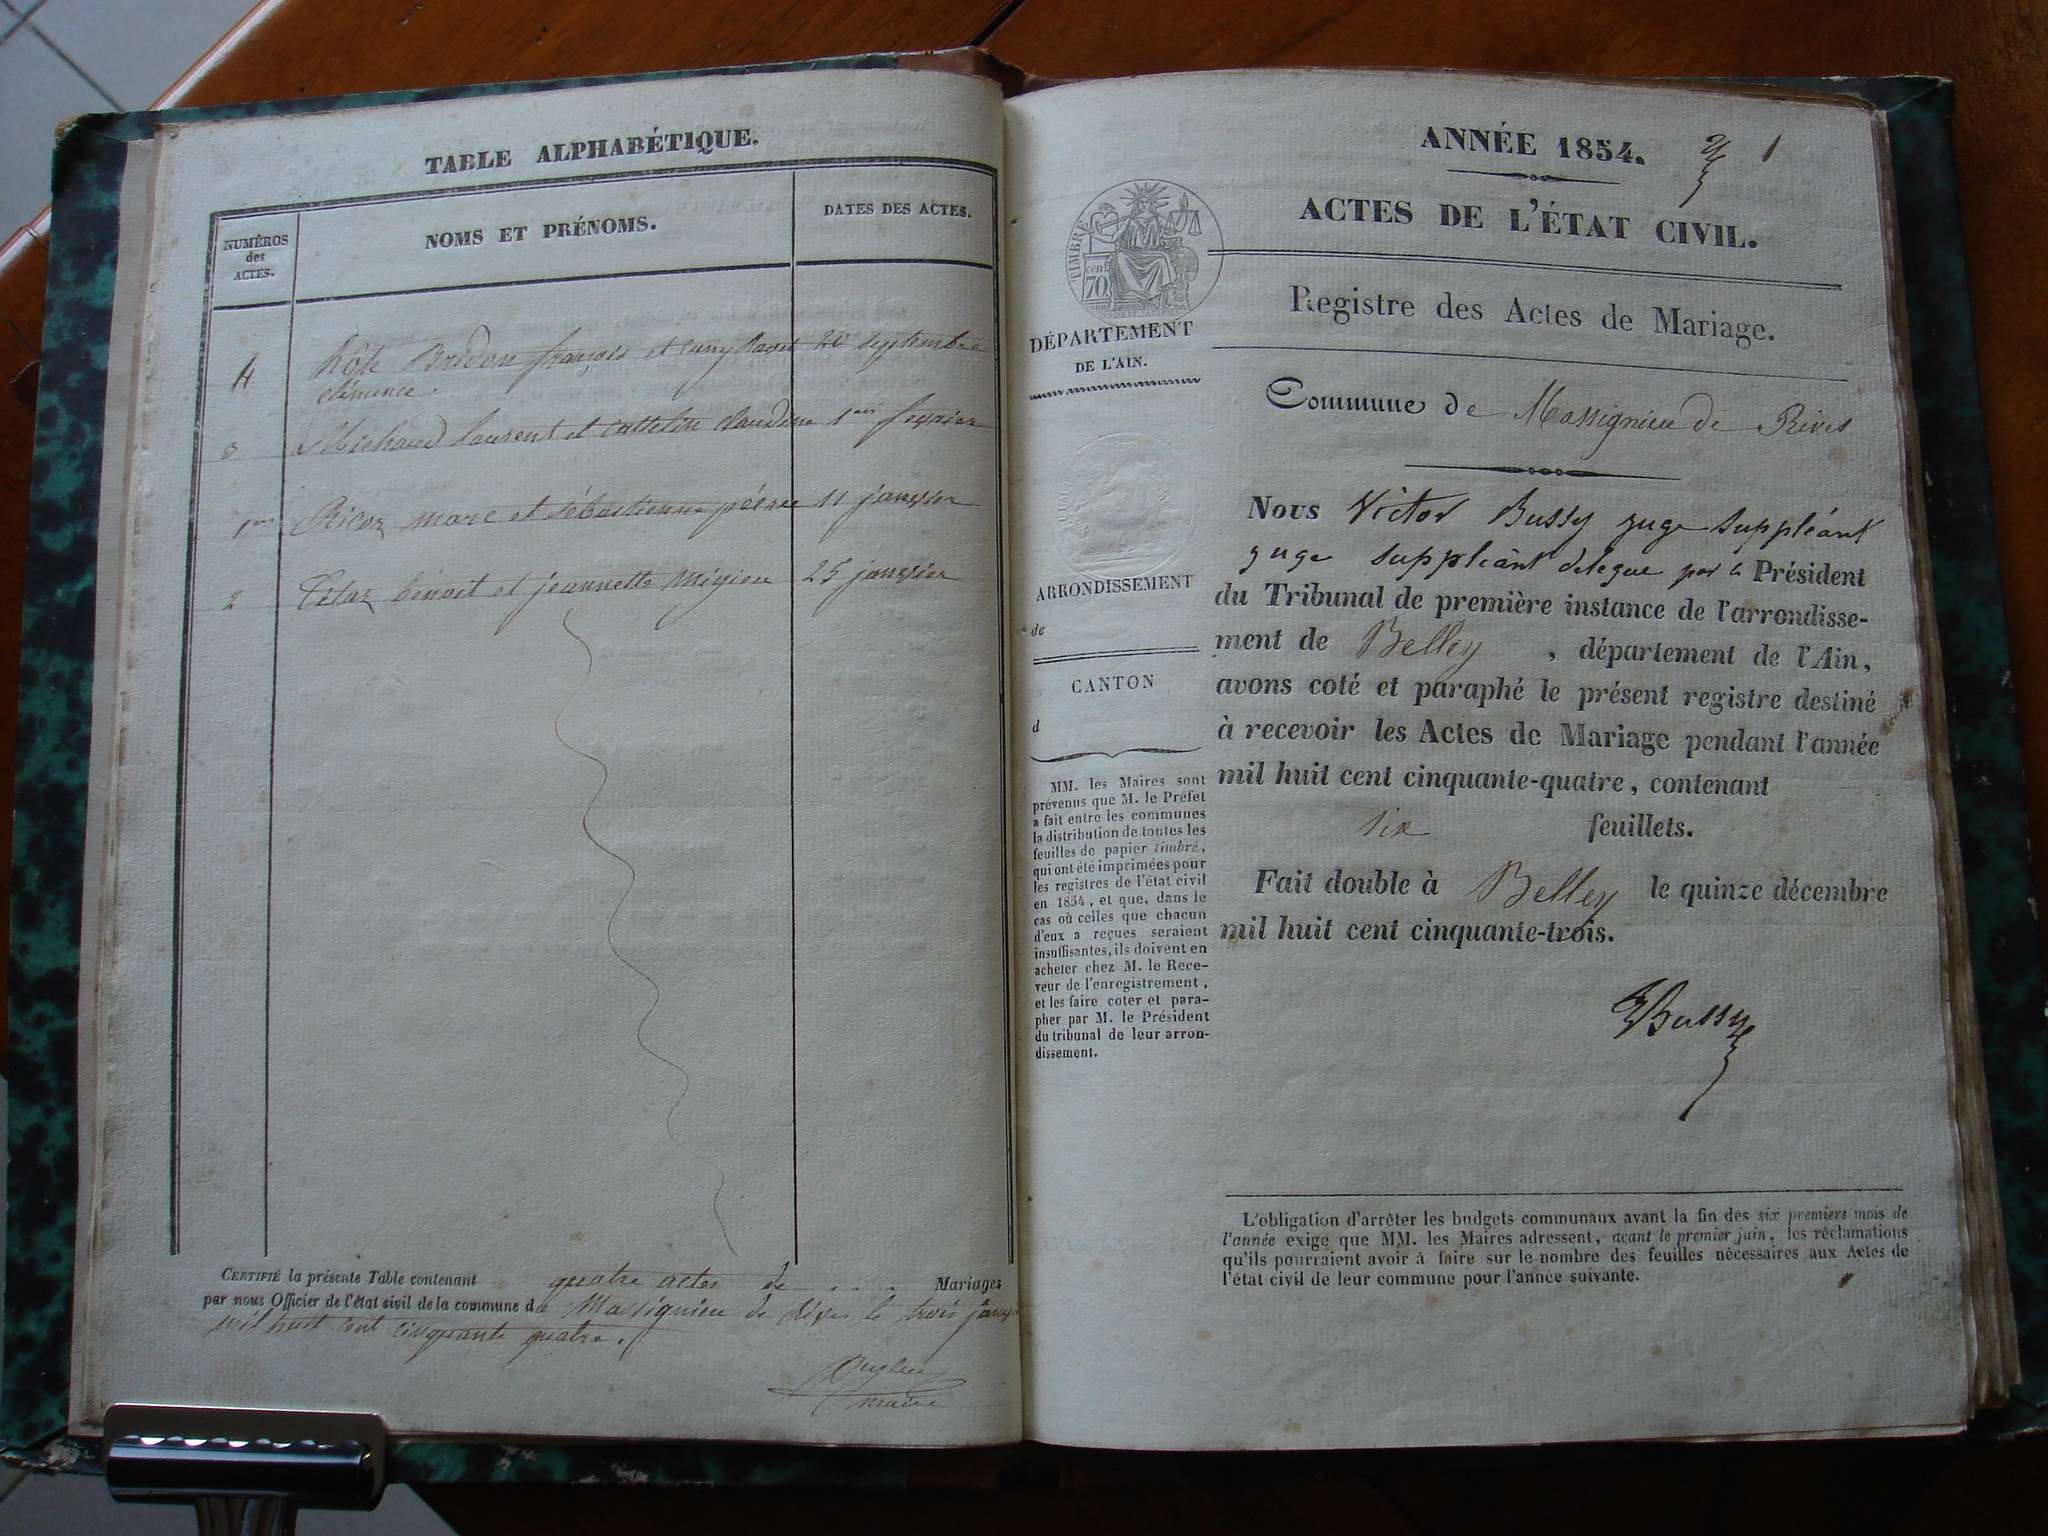 TABLE ALPHABÉTIQUE.
NUMÉROS
des
ACTES.
NOMS ET PRÉNOMS.
DATES DES ACTES.
4 hôte Bordon françois et 20 septembre
clémence.
3 Michaud laurent et cattelin claudine 1er fevrier
1er marc et sébastienne 11 janvier
2 benoit et jeannette 25 janvier
CERTIFIÉ la présente Table contenant quatre actes de . . . . Mariages
par nous Officier de l'état civil de la commune de Massignieu de Rives le trois
mil huit cent cinquante quatre.
maire
ANNÉE 1854.
1
ACTES DE L'ÉTAT CIVIL.
Registre des Actes de Mariage.
Commune de Massignieu de Rives
TIMBRE
70
DÉPARTEMENT
DE L'AIN.
ARRONDISSEMENT
de
CANTON
d
MM. les Maires sont
prévenus que M. le Préfet
a fait entre les communes
la distribution de toutes les
feuilles de papier timbré,
qui ont été imprimées pour
les registres de l'état civil
en 1854, et que, dans le
cas où celles que chacun
d'eux a reçues seraient
insuffisantes, ils doivent en
acheter chez M. le Rece-
veur de l'enregistrement,
et les faire coter et para-
pher par M. le Président
du tribunal de leur arron-
dissement.
Nous Victor Bussy juge suppléant
juge suppléant délégué par le Président
du Tribunal de première instance de l'arrondisse-
ment de Belley , département de l'Ain,
avons coté et paraphé le présent registre destiné
à recevoir les Actes de Mariage pendant l'année
mil huit cent cinquante-quatre, contenant
six feuillets.
Fait double à Belley le quinze décembre
mil huit cent cinquante-trois.
VBussy
L'obligation d'arrêter les budgets communaux avant la fin des six premiers mois de
l'année exige que MM. les Maires adressent, avant le premier juin, les réclamations
qu'ils pourraient avoir à faire sur le nombre des feuilles nécessaires aux Actes de
l'état civil de leur commune pour l'année suivante.